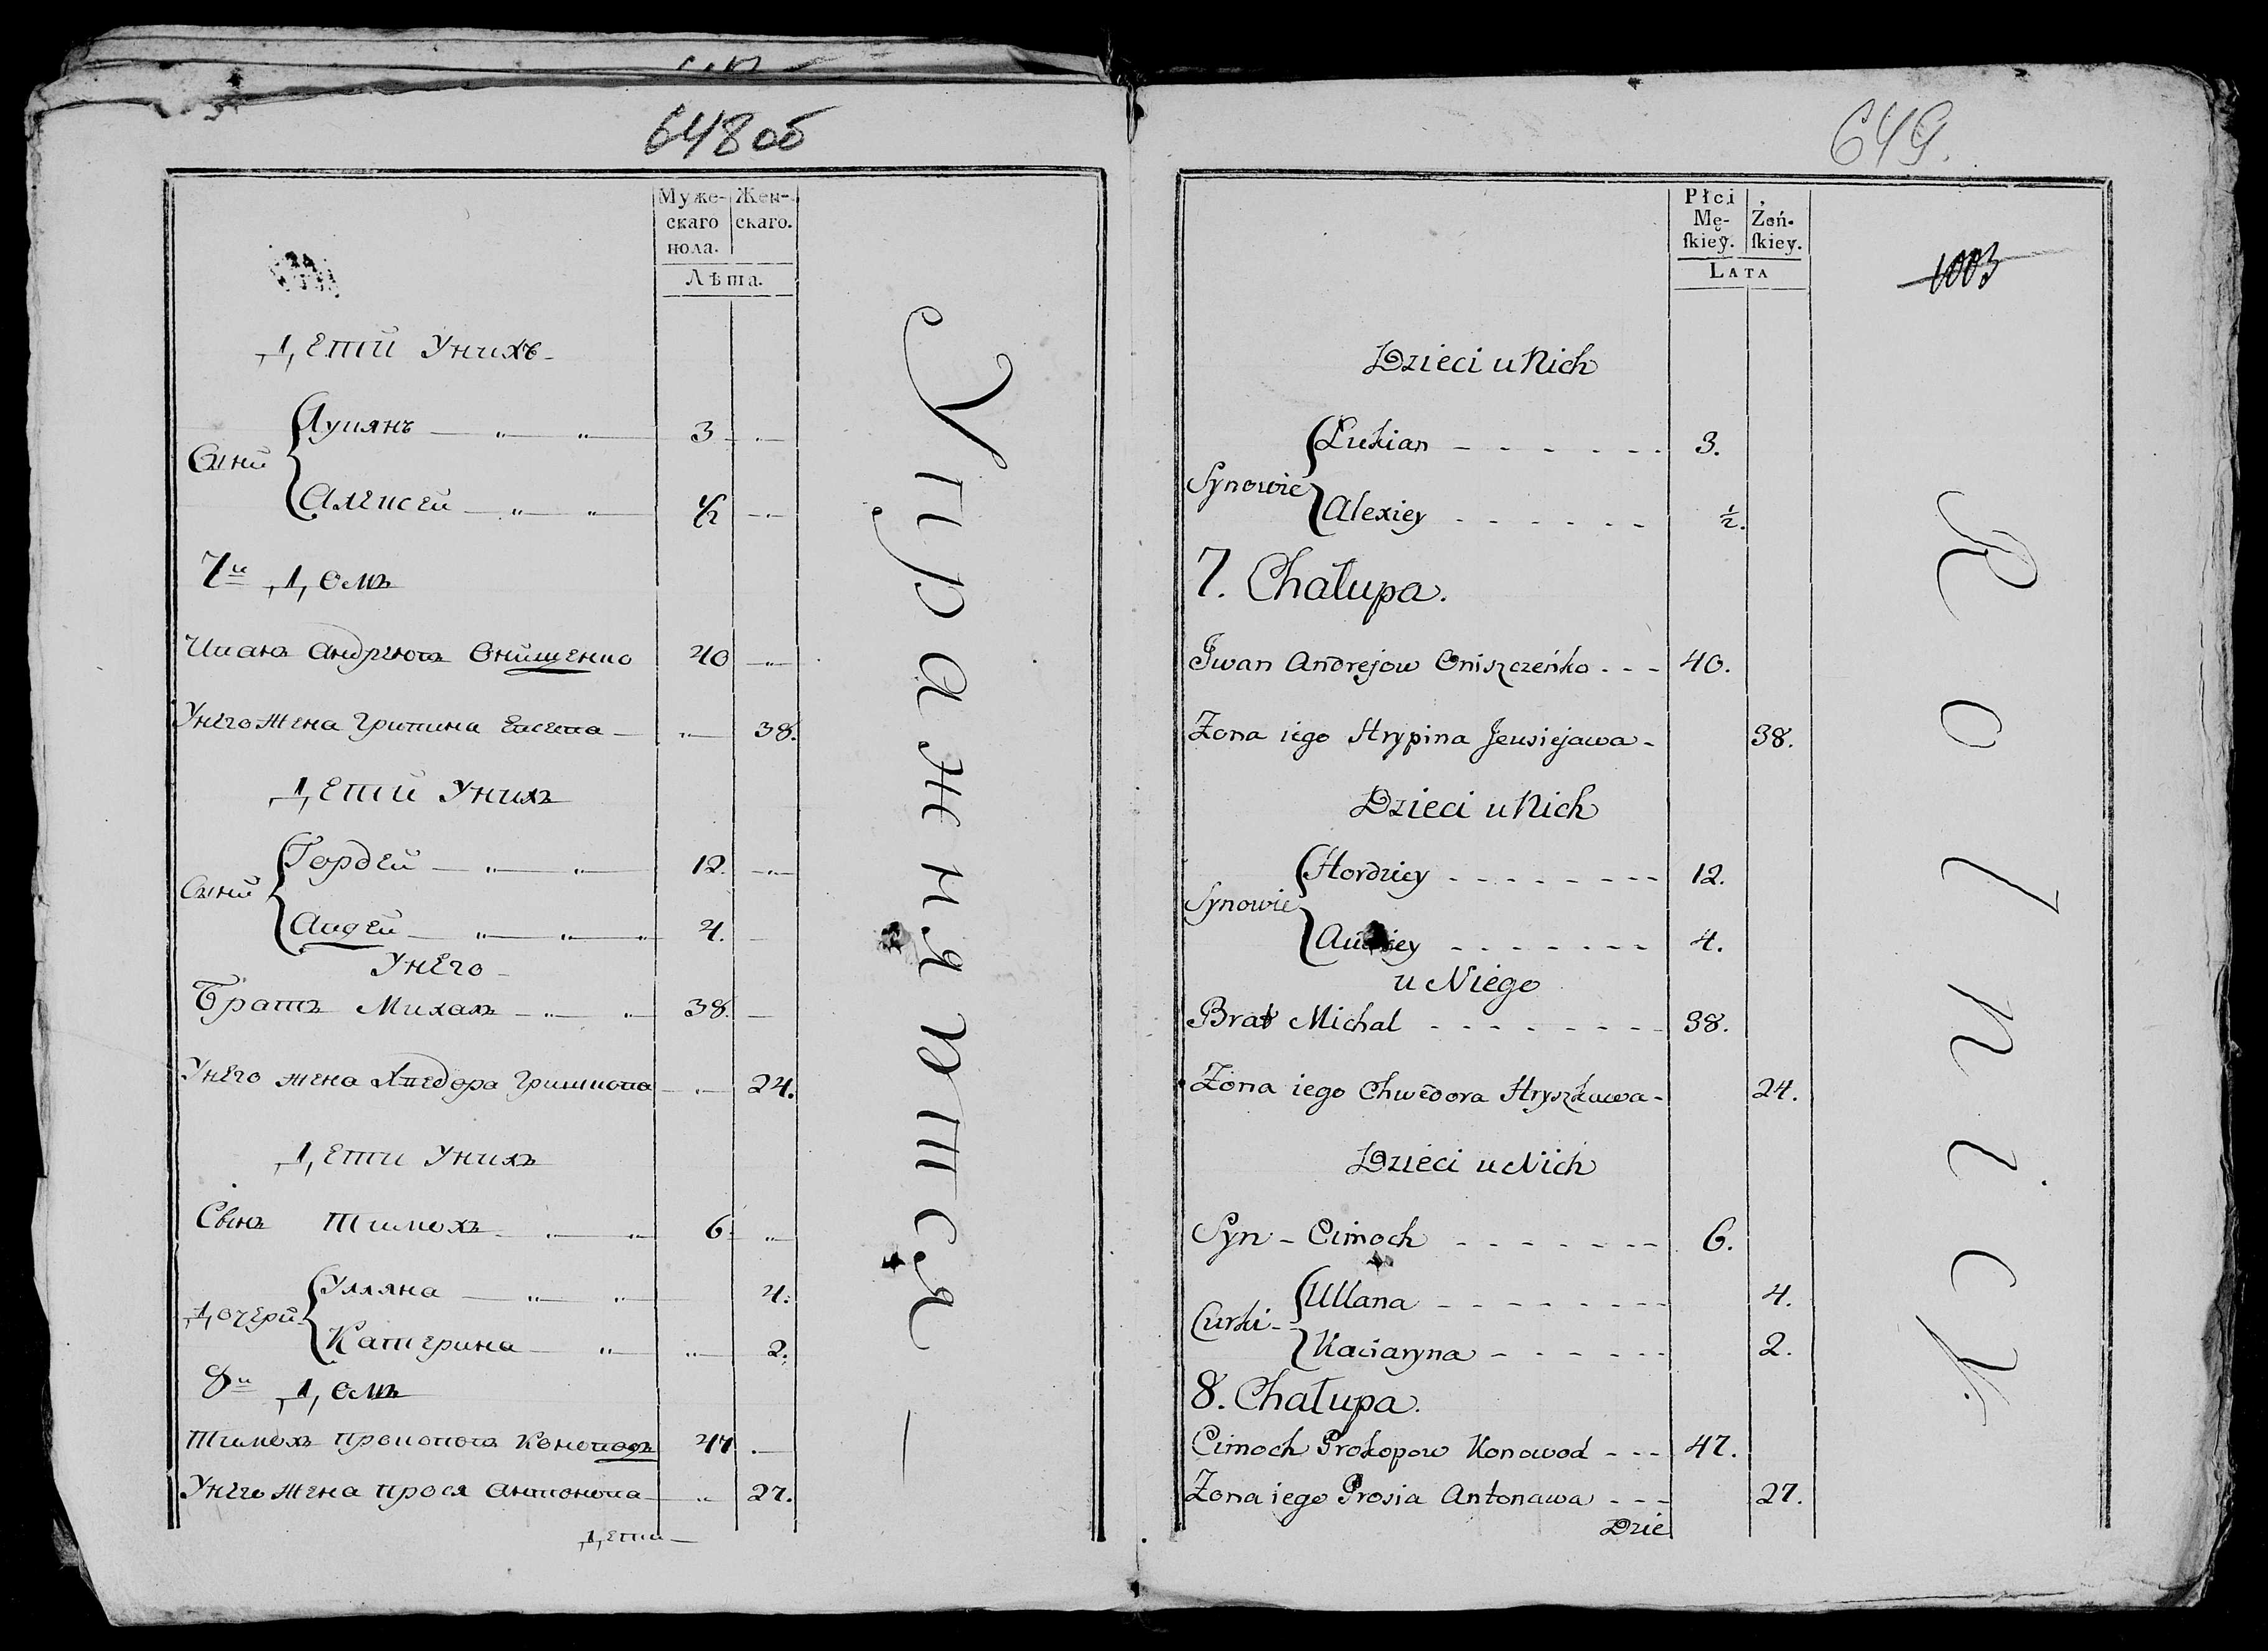 648 об
Муже-
скаго
пола.
Жен-
скаго.
Лѣта.
Дети Унихъ
Сыны
Лукянъ 3
Алексей 1/2
7й Домъ
Иванъ Андреювъ Онищенко 40
Унего жена Грипина Евсева 38.
Дети Унихъ
Сыны
Гордей 12.
Авдей 4.
Унего
Братъ Михалъ 38.
Унего жена Хведора Гришкова 24.
Дети Унихъ
Сынъ Тимохъ 6.
Дочери
Улляна 4.
Катерина 2.
8й Домъ
Тимохъ Прокоповъ Коновадъ 47
Унего жена Прося Антонова 27.
Дети
Упражняются
649.
Płci
Mę-
ſkiey.
Żeń-
ſkiey.
Lata
1003
Dzieci u Nich
Synowie
Łukian 3.
Alexiey 1/2.
7. Chałupa.
Jwan Andrejow Oniszczeńko 40.
Zona iego Hrypina Jeusiejawa 38.
Dzieci u Nich
Synowie
Hordziey 12.
Audziey 4.
u Niego
Brat Michal 38.
Zona iego Chwedora Hryszkawa 24.
Dzieci u Nich
Syn Cimoch 6.
Curki
Ullana 4.
Kaciaryna 2.
8. Chałupa.
Cimoch Prokopow Konowod 47.
Zona iego Prosia Antonawa 27.
Dzie
Rolnicy